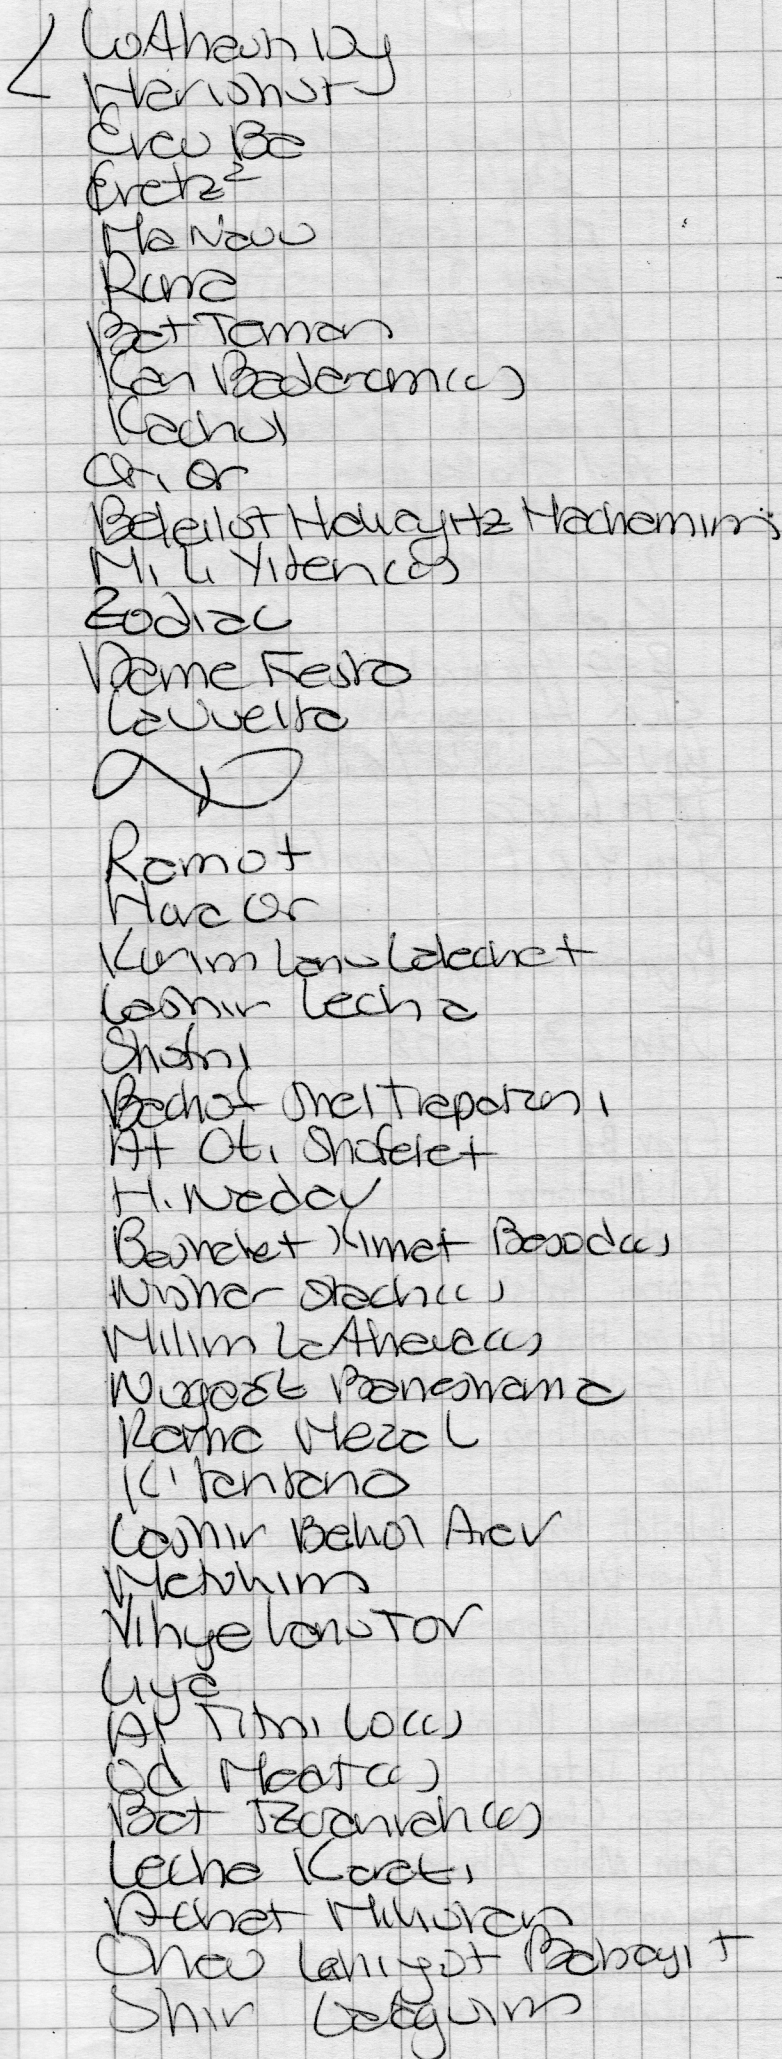 Erev Ba
Eretz²
Ma Navu
Rina
Bat Teman
Kan Badarom(c)
Kachol
Ori Or
Beleilot Hakayitz Hachamim
Mi Li Yiten(c)
Zodiac
Dame Fesro
La Vuelta
Ramot
Hava Or
Karim Lanu Lalechet
Lashir Lecha
Shotri
Bachof Shel Trapatoni
At Oti Shofelet
Hi Nadav
Beshelet Kimat Besod(c)
Nishar Otach(c)
Milim La Ahava(c)
Nugat Baneshama
Kama Mazal
Ki Tantano
Lashir Behol Arev
Metukim
Yihye Lanu Tov
Liya
At Titni Lo(c)
Od Meat(c)
Bat Tzoaniah(c)
Lecha Karati
Achat Mikulan
Ohev Lahiyot Babayit
Shir